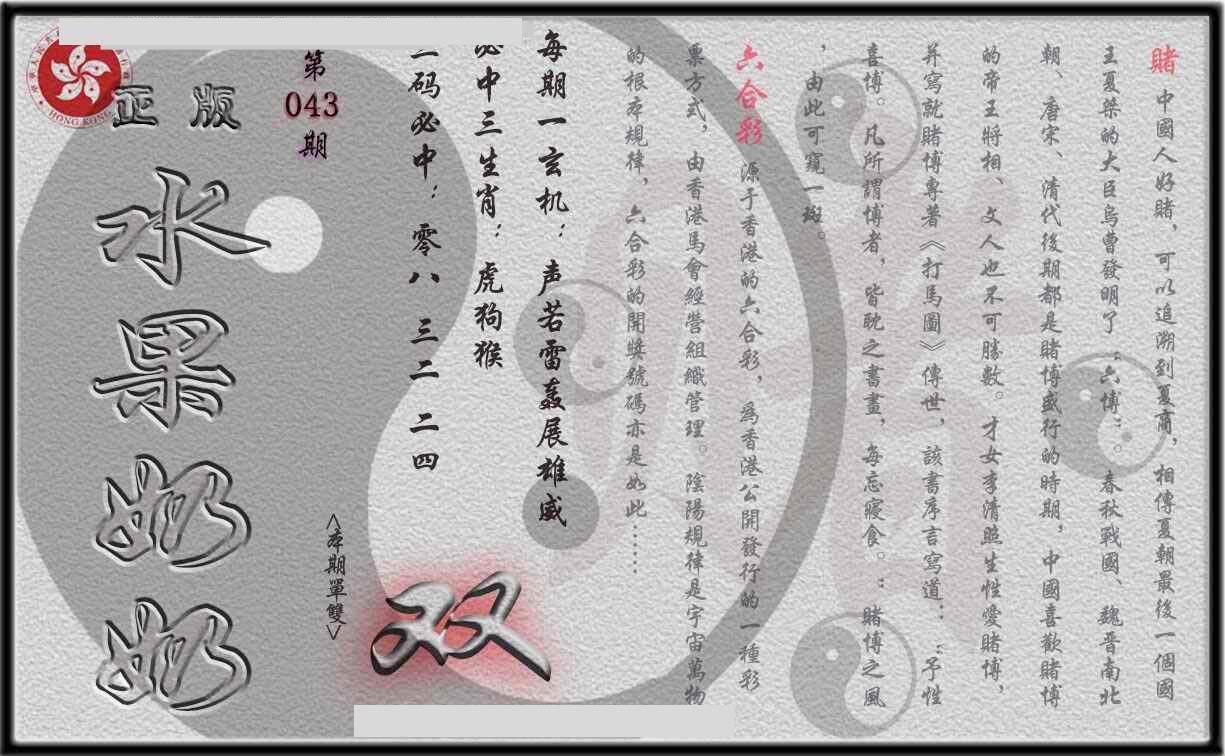 賭 中國人好賭，可以追溯到夏商，相傳夏朝最後一個國
王夏桀的大臣烏曹發明了“六博”。春秋戰國、魏晋南北
朝、唐宋、清代後期都是賭博盛行的時期，中國喜歡賭博
的帝王將相、文人也不可勝數。才女李清照生性愛賭博，
并寫就賭博專著《打馬圖》傳世，該書序言寫道：“予性
喜博。凡所謂博者，皆耽之書晝，每忘寢食。”賭博之風
，由此可窺一斑。
六合彩 源于香港的六合彩，為香港公開發行的一種彩
票方式，由香港馬會經營組織管理。陰陽規律是宇宙萬物
的根本規律，六合彩的開獎號碼亦是如此……
每期一玄机：声若雷轰展雄威
必中三生肖：虎狗猴
三码必中：零八 三二 二四
<本期單雙>
双
第
043
期
正版
水果奶奶
HONG KONG